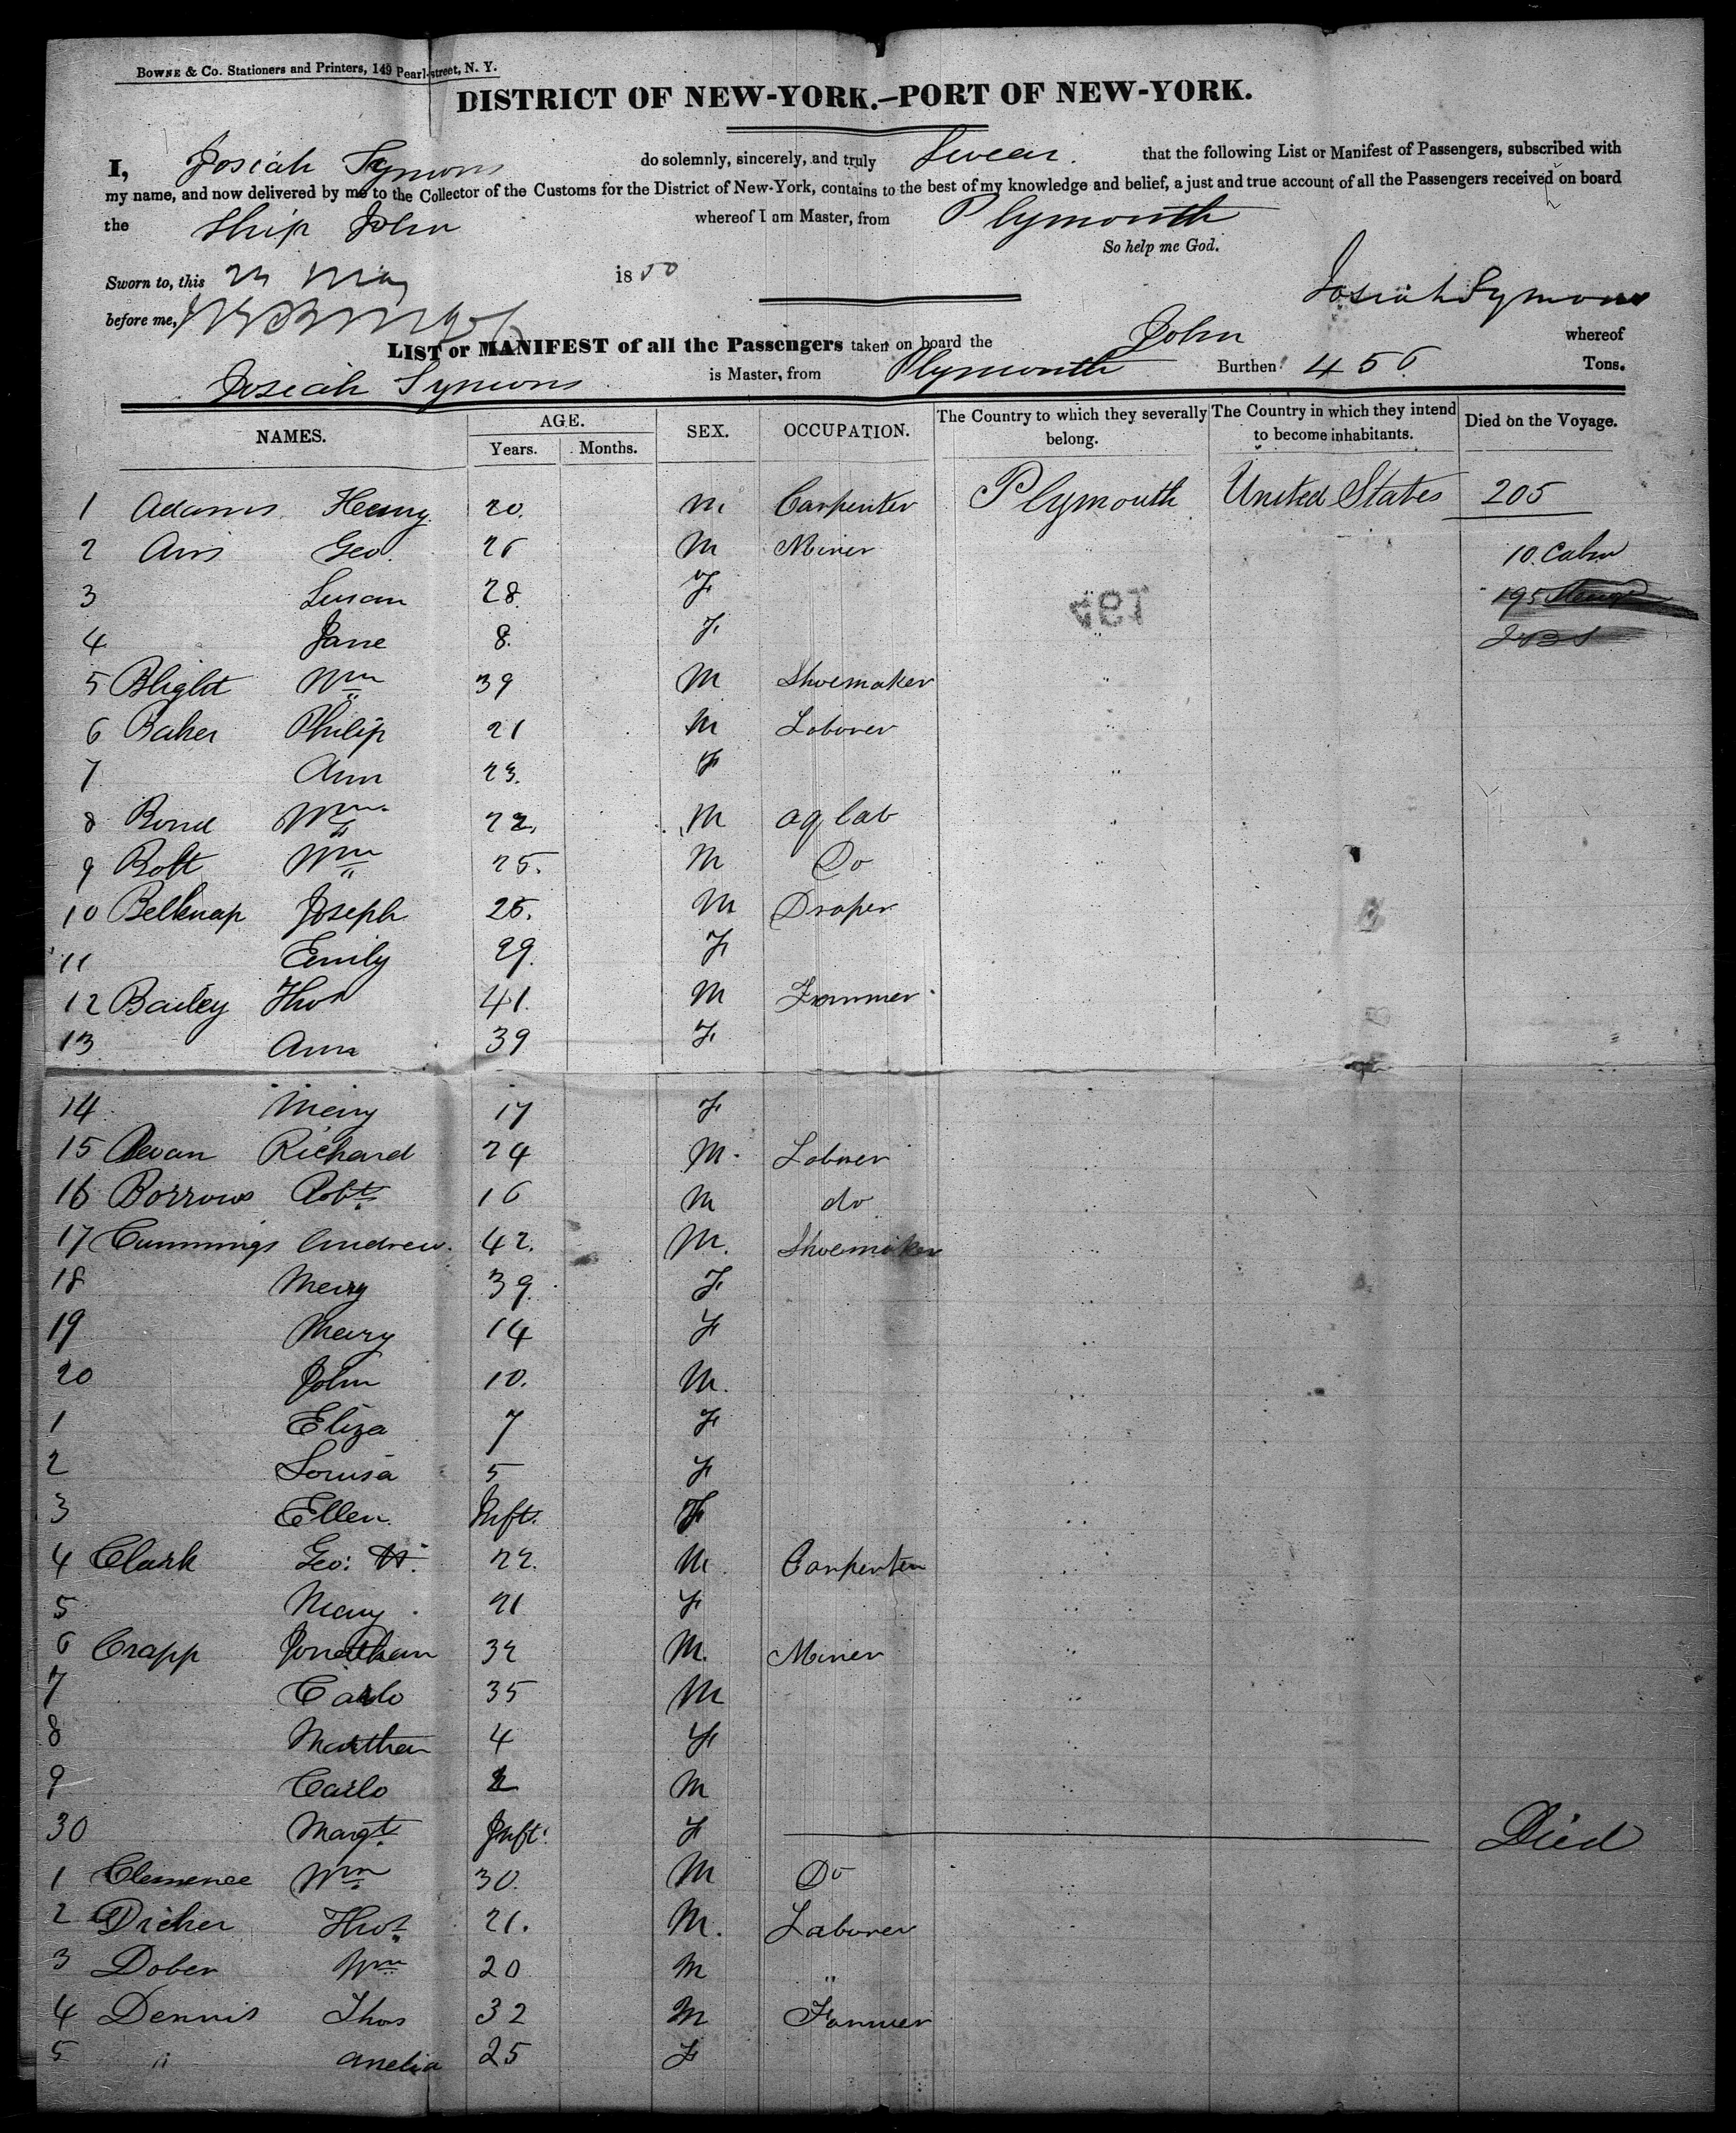 BOWNE & CO. Stationers and Printers, 149 Pearl-street, N. Y.
DISTRICT OF NEW-YORK.—PORT OF NEW-YORK.
I, Josiah Symons do solemnly, sincerely, and truly Swear. that the following List or Manifest of Passengers, subscribed with
my name, and now delivered by me to the Collector of the Customs for the District of New-York, contains to the best of my knowledge and belief, a just and true account of all the Passengers received on board
the Ship John whereof I am Master, from Plymouth
So help me God.
Sworn to, this May 1850
Josiah Symons
before me,
LIST or MANIFEST of all the Passengers taken on board the John whereof
Josiah Symons is Master, from Plymouth Burthen 456 Tons.
NAMES. AGE. Years. Months. SEX. OCCUPATION. The Country to which they severally belong. The Country in which they intend to become inhabitants. Died on the Voyage.
1 Adams Henry 20. M Carpenter Plymouth United States 205
2 Avis Geo 26 M Miner 10. Cabin
3 Susan 28. F 195
4 Jane 8. F
5 Blight Wm 39 M Shoemaker
6 Baker Philip 21 M Laborer
7 Ann 23. F
8 Bond Wm 22, M ag lab
9 Bolt Wm 25. M Do
10 Belknap Joseph 25. M Draper
11 Emily 29. F
12 Bailey Thos 41. M Farmer
13 Ann 39 F
14 Mary 17 F
15 Bevan Richard 24 M. Laborer
16 Borrows Robt 16 M do
17 Cummings Andrew. 42. M. Shoemaker
18 Mary 39. F
19 Mary 14 F
20 John 10. M.
1 Eliza 7 F
2 Louisa 5 F
3 Ellen. Inft. F
4 Clark Geo: W. 22. M. Carpenter
5 Mary 21 F
6 Crapp Jonathan 32 M. Miner
7 Carlo 35 M
8 Martha 4 F
9 Carlo 2 M
30 Margt Inft. F Died
1 Clemence Wm 30. M Do
2 Dicher Thos 21. M. Laborer
3 Dober Wm 20 M "
4 Dennis Thos 32 M Farmer
5 " Amelia 25 F